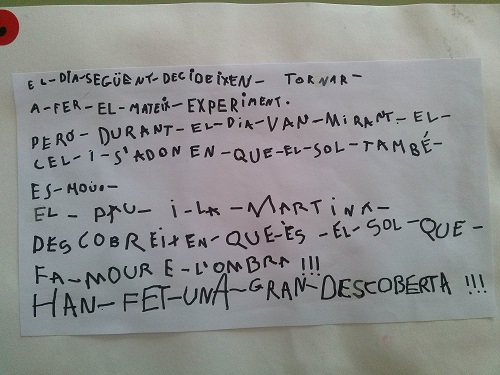 EL-DIA-SEGÜENT-DECIDEIXEN- TORNAR-
A-FER-EL-MATEIX-EXPERIMENT.
PERO-DURANT-EL-DIA-VAN-MIRANT-EL-
CEL-I-S'ADONEN-QUE-EL-SOL-TAMBÉ-
ES-MOU.-
EL-PAU-I-LA-MARTINA-
DESCOBREIXEN-QUE-ÈS-EL-SOL-QUE-
FA-MOURE-L'OMBRA!!!
HAN-FET-UNA-GRAN-DESCOBERTA!!!